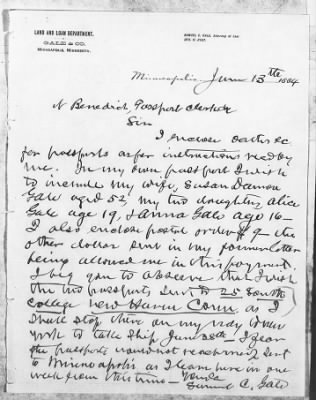 LAND AND LOAN DEPARTMENT.
GALE & CO.
MINNEAPOLIS, MINNESOTA.
SAMUEL C. GALE, Attorney at Law
Minneapolis June 13th 1884
N Benedict Passport Clerk
Sir
I enclose oaths &c
for passports as per instructions recd by
me. In my own passport I wish
to include my wife, Susan Damon
Gale aged 52, my two daughters Alice
Gale age 19, & Anna Gale age 16—
I also enclose postal order $9 the
other dollar sent in my former letter
being allowed me in this payment.
I beg you to observe that I wish
the two passports sent to 25 South
College New Haven Conn as I
shall stop there on my way to New
York to take ship June 28th — I fear
the passports would not reach me if sent
to Minneapolis as I leave here in one
week from this time — Yours
Samuel C. Gale